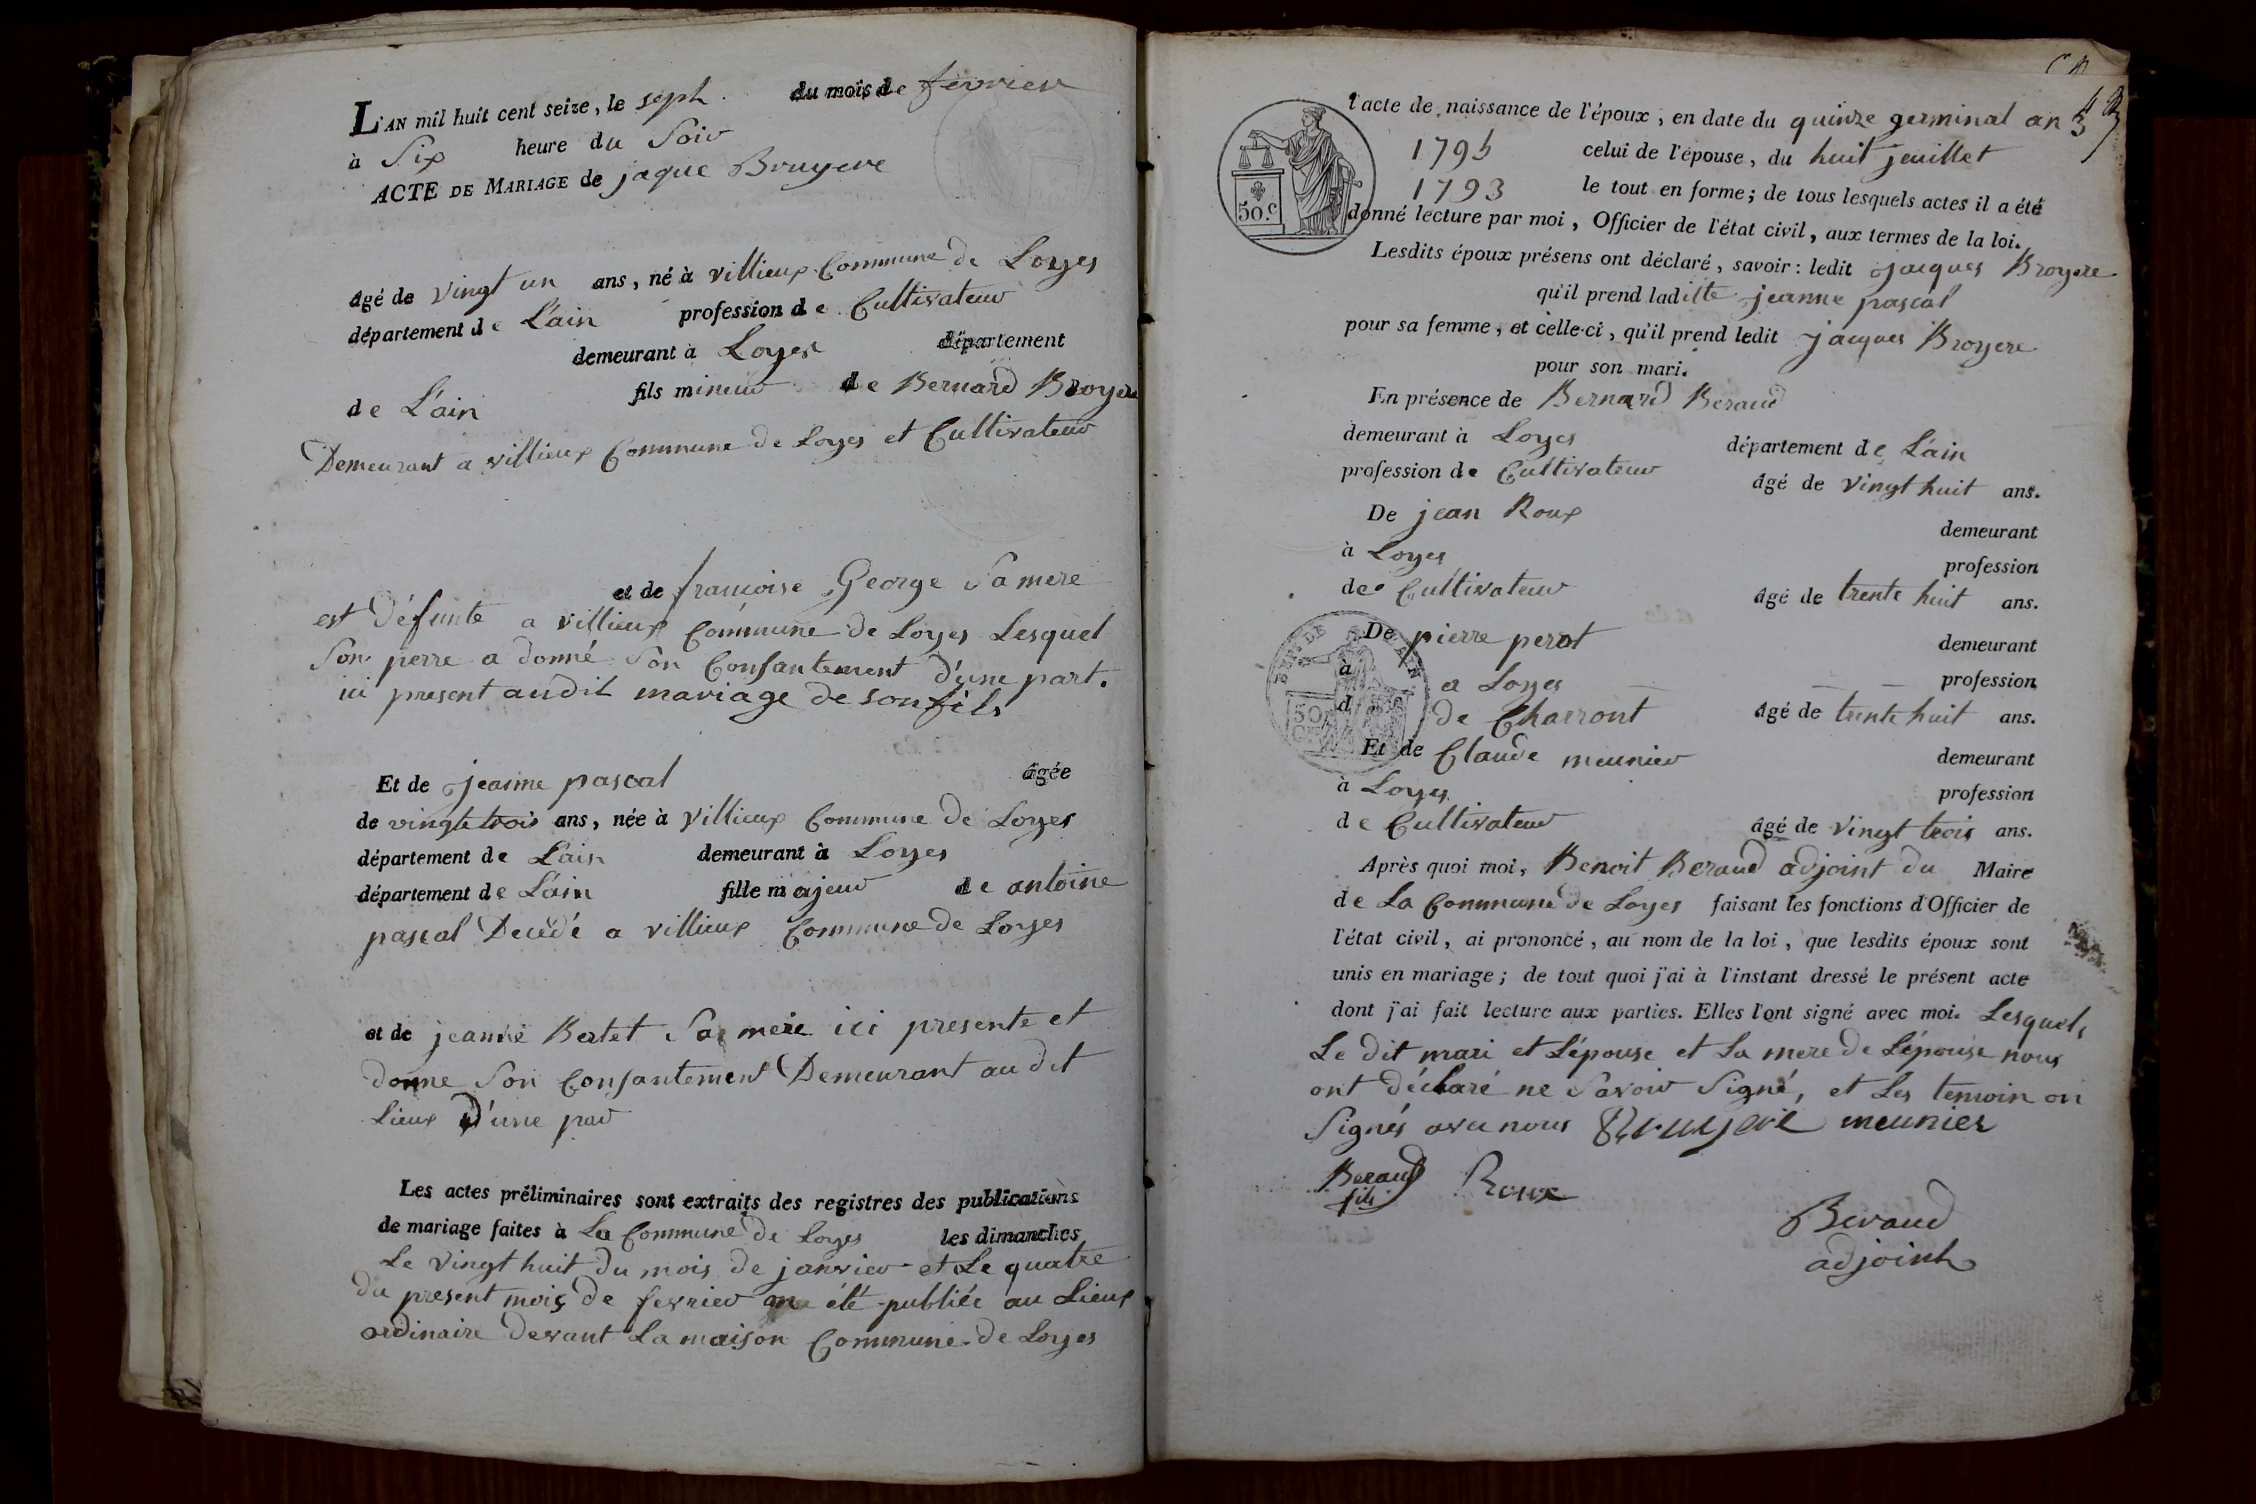 L'AN mil huit cent seize, le sept du mois de fevrier
à Six heure du Soir
ACTE DE MARIAGE de jaque Bruyere
âgé de vingt un ans, né à villieux Commune de Loyes
département de L'ain profession de Cultivateur
demeurant à Loyes département
de L'ain fils mineur de Bernard Broyere
Demeurant a villieux Commune de Loyes et Cultivateur
et de francoise George Sa mere
est Défunte a villieux Commune de Loyes Lesquel
Son perre a donné Son Consantement d'une part.
ici present audit mariage de son fils
Et de jeanne pascal âgée
de vingt trois ans, née à villieux Commune de Loyes
département de L'ain demeurant à Loyes
département de L'ain fille majeur de antoine
pascal Decédé a villieux Commune de Loyes
et de jeanne Bertet Sa mere ici presente et
donne Son Consantement Demeurant au dit
Lieux D'une par
Les actes préliminaires sont extraits des registres des publications
de mariage faites à La Commune de Loyes les dimanches
Le vingt huit du mois de janvier et Le quatre
du present mois de fevrier été publiée au Lieux
ordinaire devant La maison Commune de Loyes
l'acte de naissance de l'époux, en date du quinze germinal an 3
1795 celui de l'épouse, du huit jeuillet
1793 le tout en forme; de tous lesquels actes il a été
donné lecture par moi, Officier de l'état civil, aux termes de la loi.
Lesdits époux présens ont déclaré, savoir: ledit jacques Broyere
qu'il prend laditte jeanne pascal
pour sa femme, et celle-ci, qu'il prend ledit jacques Broyere
pour son mari.
En présence de Bernard Beraud
demeurant à Loyes département de L'ain
profession de Cultivateur âgé de vingt huit ans.
De jean Roux demeurant
à Loyes profession
de Cultivateur âgé de trente huit ans.
De pierre perot demeurant
à a Loyes profession
d de Charront âgé de trente huit ans.
50
Et de Claude meunier demeurant
à Loyes profession
de Cultivateur âgé de vingt trois ans.
Après quoi moi, Benoit Beraud adjoint du Maire
de La Commune de Loyes faisant les fonctions d'Officier de
l'état civil, ai prononcé, au nom de la loi, que lesdits époux sont
unis en mariage; de tout quoi j'ai à l'instant dressé le présent acte
dont j'ai fait lecture aux parties. Elles l'ont signé avec moi. Lesquels
Le dit mari et L'épouse et La mere de L'épouse nous
ont déclaré ne Savoir Signé, et Les temoin on
Signés avec nous Bruyere meunier
Beraud Roux
fils
Beraud
adjoint
50.c